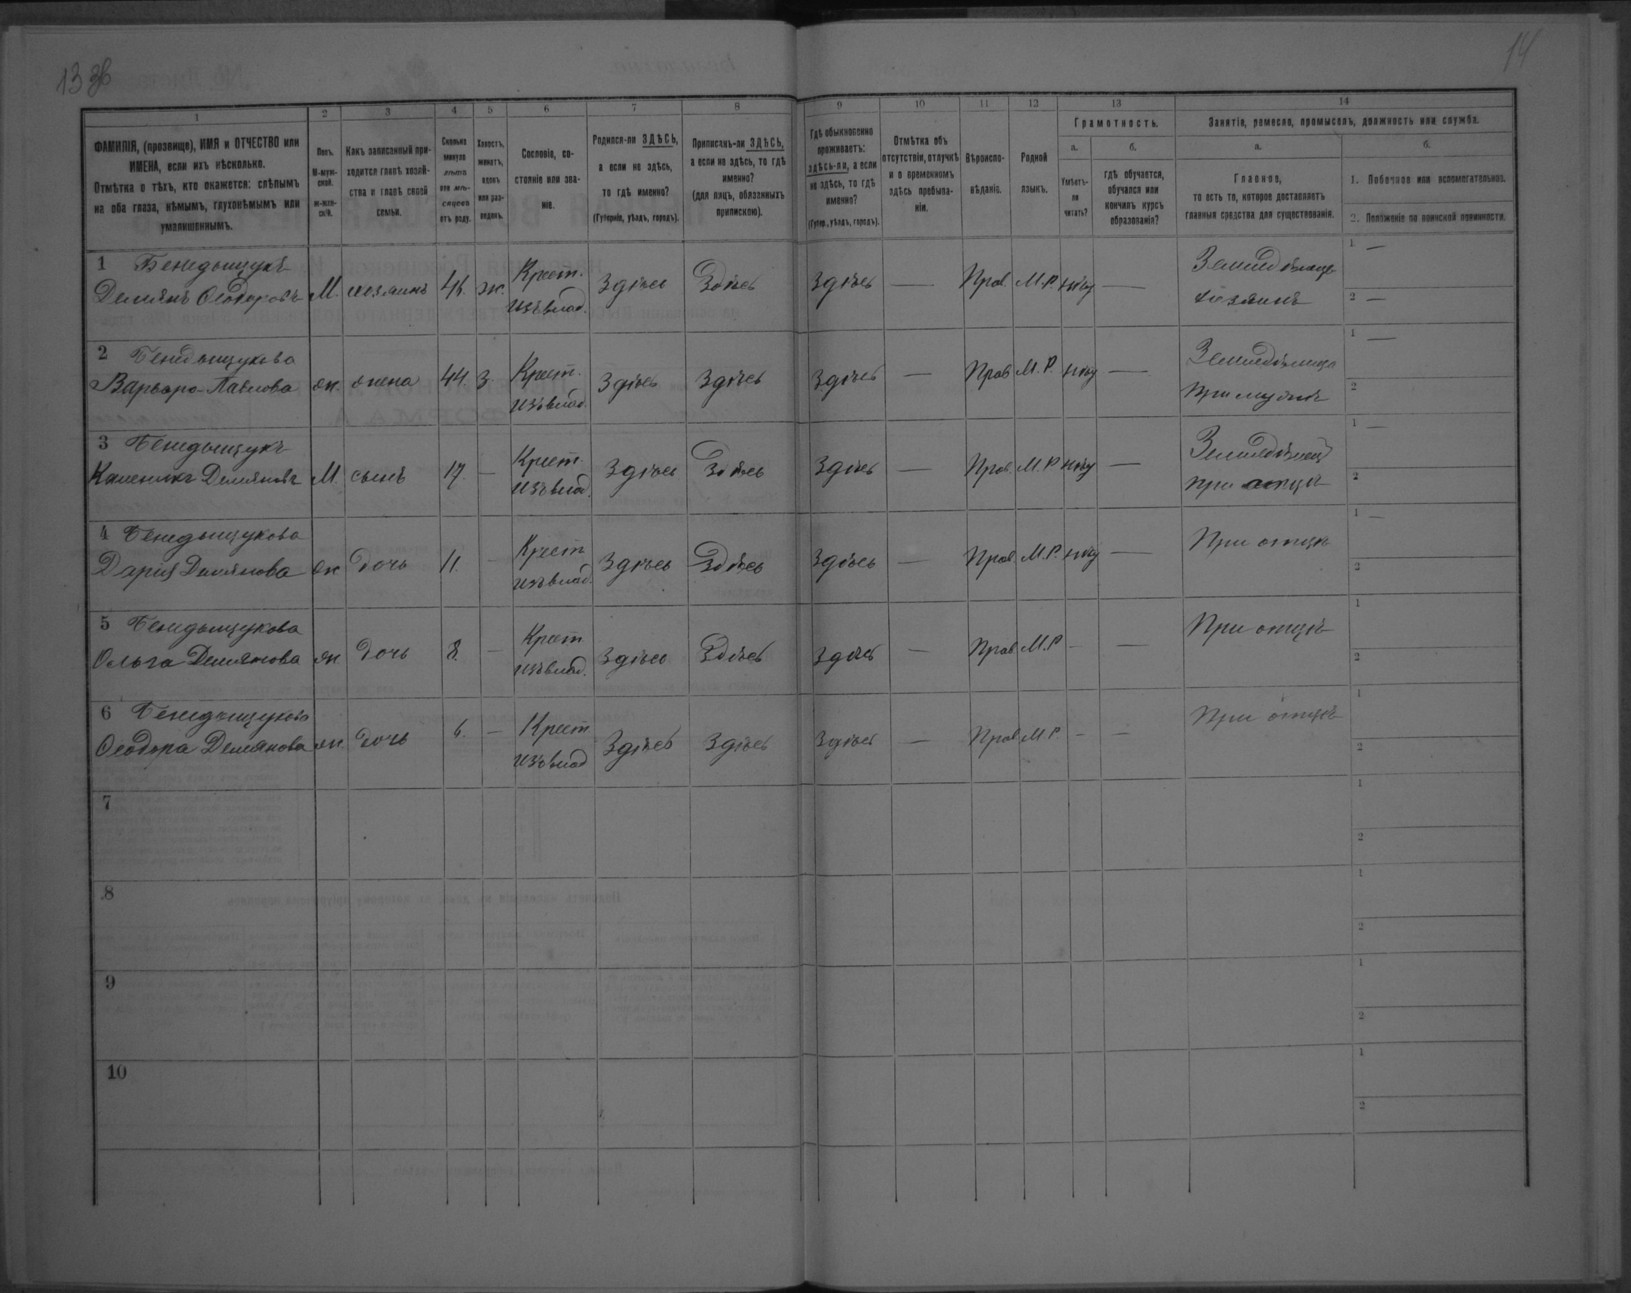 13 об
14
1 2 3 4 5 6 7 8 9 10 11 12 13 14
ФАМИЛІЯ, (прозвище), ИМЯ и ОТЧЕСТВО или
ИМЕНА, если ихъ нѣсколько.
Отмѣтка о тѣхъ, кто окажется: слѣпымъ
на оба глаза, нѣмымъ, глухонѣмымъ или
умалишеннымъ.
Полъ.
М-муж-
ской.
ж-жен-
скій.
Какъ записанный при-
ходится главѣ хозяй-
ства и главѣ своей
семьи.
Сколько
минуло
лѣтъ
или мѣ-
сяцевъ
отъ роду.
Холостъ,
женатъ,
вдовъ
или раз-
веденъ.
Сословіе, со-
стояніе или зва-
ніе.
Родился-ли ЗДѢСЬ,
а если не здѣсь,
то гдѣ именно?
(Губернія, уѣздъ, городъ).
Приписанъ-ли ЗДѢСЬ,
а если не здѣсь, то гдѣ
именно?
(для лицъ, обязанныхъ
припискою).
Гдѣ обыкновенно
проживаетъ:
здѣсь-ли, а если
не здѣсь, то гдѣ
именно?
(Губер., уѣздъ, городъ).
Отмѣтка объ
отсутствіи, отлучкѣ
и о временномъ
здѣсь пребыва-
ніи.
Вѣроиспо-
вѣданіе.
Родной
языкъ.
Грамотность.
а.
Умѣетъ-
ли
читать?
б.
гдѣ обучается,
обучался или
кончилъ курсъ
образованія?
Занятіе, ремесло, промыселъ, должность или служба.
а.
Главное,
то есть то, которое доставляетъ
главныя средства для существованія.
б.
1. Побочное или вспомогательное.
2. Положеніе по воинской повинности.
1 Бенедыщукъ
Демянъ Ѳеодоровъ М. хозяинъ 45. ж. Крест. изъ влад. Здѣсь Здѣсь Здѣсь — Прав. М.Р. нѣтъ — Земледѣлецъ хозяинъ 1 — 2 —
2 Бенедыщукова
Варвара Павлова ж. жена 44. з. Крест. изъ влад. Здѣсь Здѣсь Здѣсь — Прав. М.Р. нѣтъ — Земледѣлица при мужѣ 1 — 2
3 Бенедыщукъ
Демяновъ М. сынъ 17. — Крест. изъ влад. Здѣсь Здѣсь Здѣсь — Прав. М.Р. нѣтъ — Земледѣлецъ при отцѣ 1 — 2
4 Бенедыщукова
Дарія Демянова ж. дочь 11. — Крест. изъ влад. Здѣсь Здѣсь Здѣсь — Прав. М.Р. нѣтъ — При отцѣ 1 — 2
5 Бенедыщукова
Ольга Демянова ж. дочь 8. — Крест. изъ влад. Здѣсь Здѣсь Здѣсь — Прав. М.Р. - — При отцѣ 1 2
6 Бенедыщукова
Ѳеодора Демянова ж. дочь 6. — Крест. изъ влад. Здѣсь Здѣсь Здѣсь — Прав. М.Р. - — При отцѣ 1 2
7 1 2
8 1 2
9 1 2
10 1 2